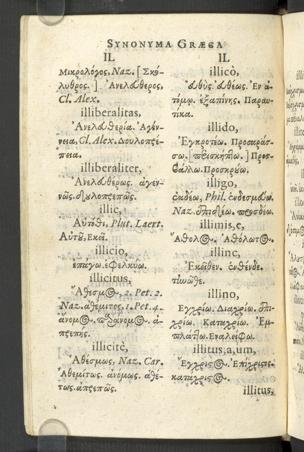 SYNONYMA GRÆCA
IL
Μικρολόγος, Naz. [Σκό-
λυθρος.] Ἀνελεύθερος,
Cl. Alex.
illiberalitas,
Ἀνελευθερία. Ἀγέν-
νεια, Cl. Alex. Δουλοπρέ-
πεια.
illiberaliter,
Ἀνελευθέρως. ἀγεν-
νῶς. δουλοπρεπῶς.
illic,
Αὐτόθι, Plut. Laert.
Αὐτοῦ, Ἐκεῖ.
illicio,
ἐπάγω. ἐφελκύω.
illicitus,
Ἄθεσμος, 2. Pet. 2.
Naz. ἀθέμιτος, 1. Pet. 4.
ἄνομος. παράνομος. ἀ-
πρεπής.
illicitè,
Ἀθέσμως, Naz. Car.
Ἀθεμίτως. ἀνόμως. ἀθέ-
τως. ἀπρεπῶς.
IL
illicò,
εὐθύς. εὐθέως. Ἐν ἀ-
τόμῳ. ἐξαπίνης. Παραυ-
τίκα.
illido,
Ἐγκροτέω. Προσαράσ-
σω. Προσ-
βάλλω. Προσκρούω.
illigo,
ἐνδέω, Phil. ἐνδεσμεύω,
Naz.
illimis, e,
Ἄθολος. Ἀθόλωτος.
illinc,
Ἐκεῖθεν. ἐνθένδε.
illino,
Ἐγχρίω. Διαχρίω. ἐπι-
χρίω. Καταχρίω. Ἐμ-
πλάττω. Ἐναλείφω.
illitus, a, um,
Ἔγχριστος. Ἐπίχριστος.
κατάχριστος.
illitus,